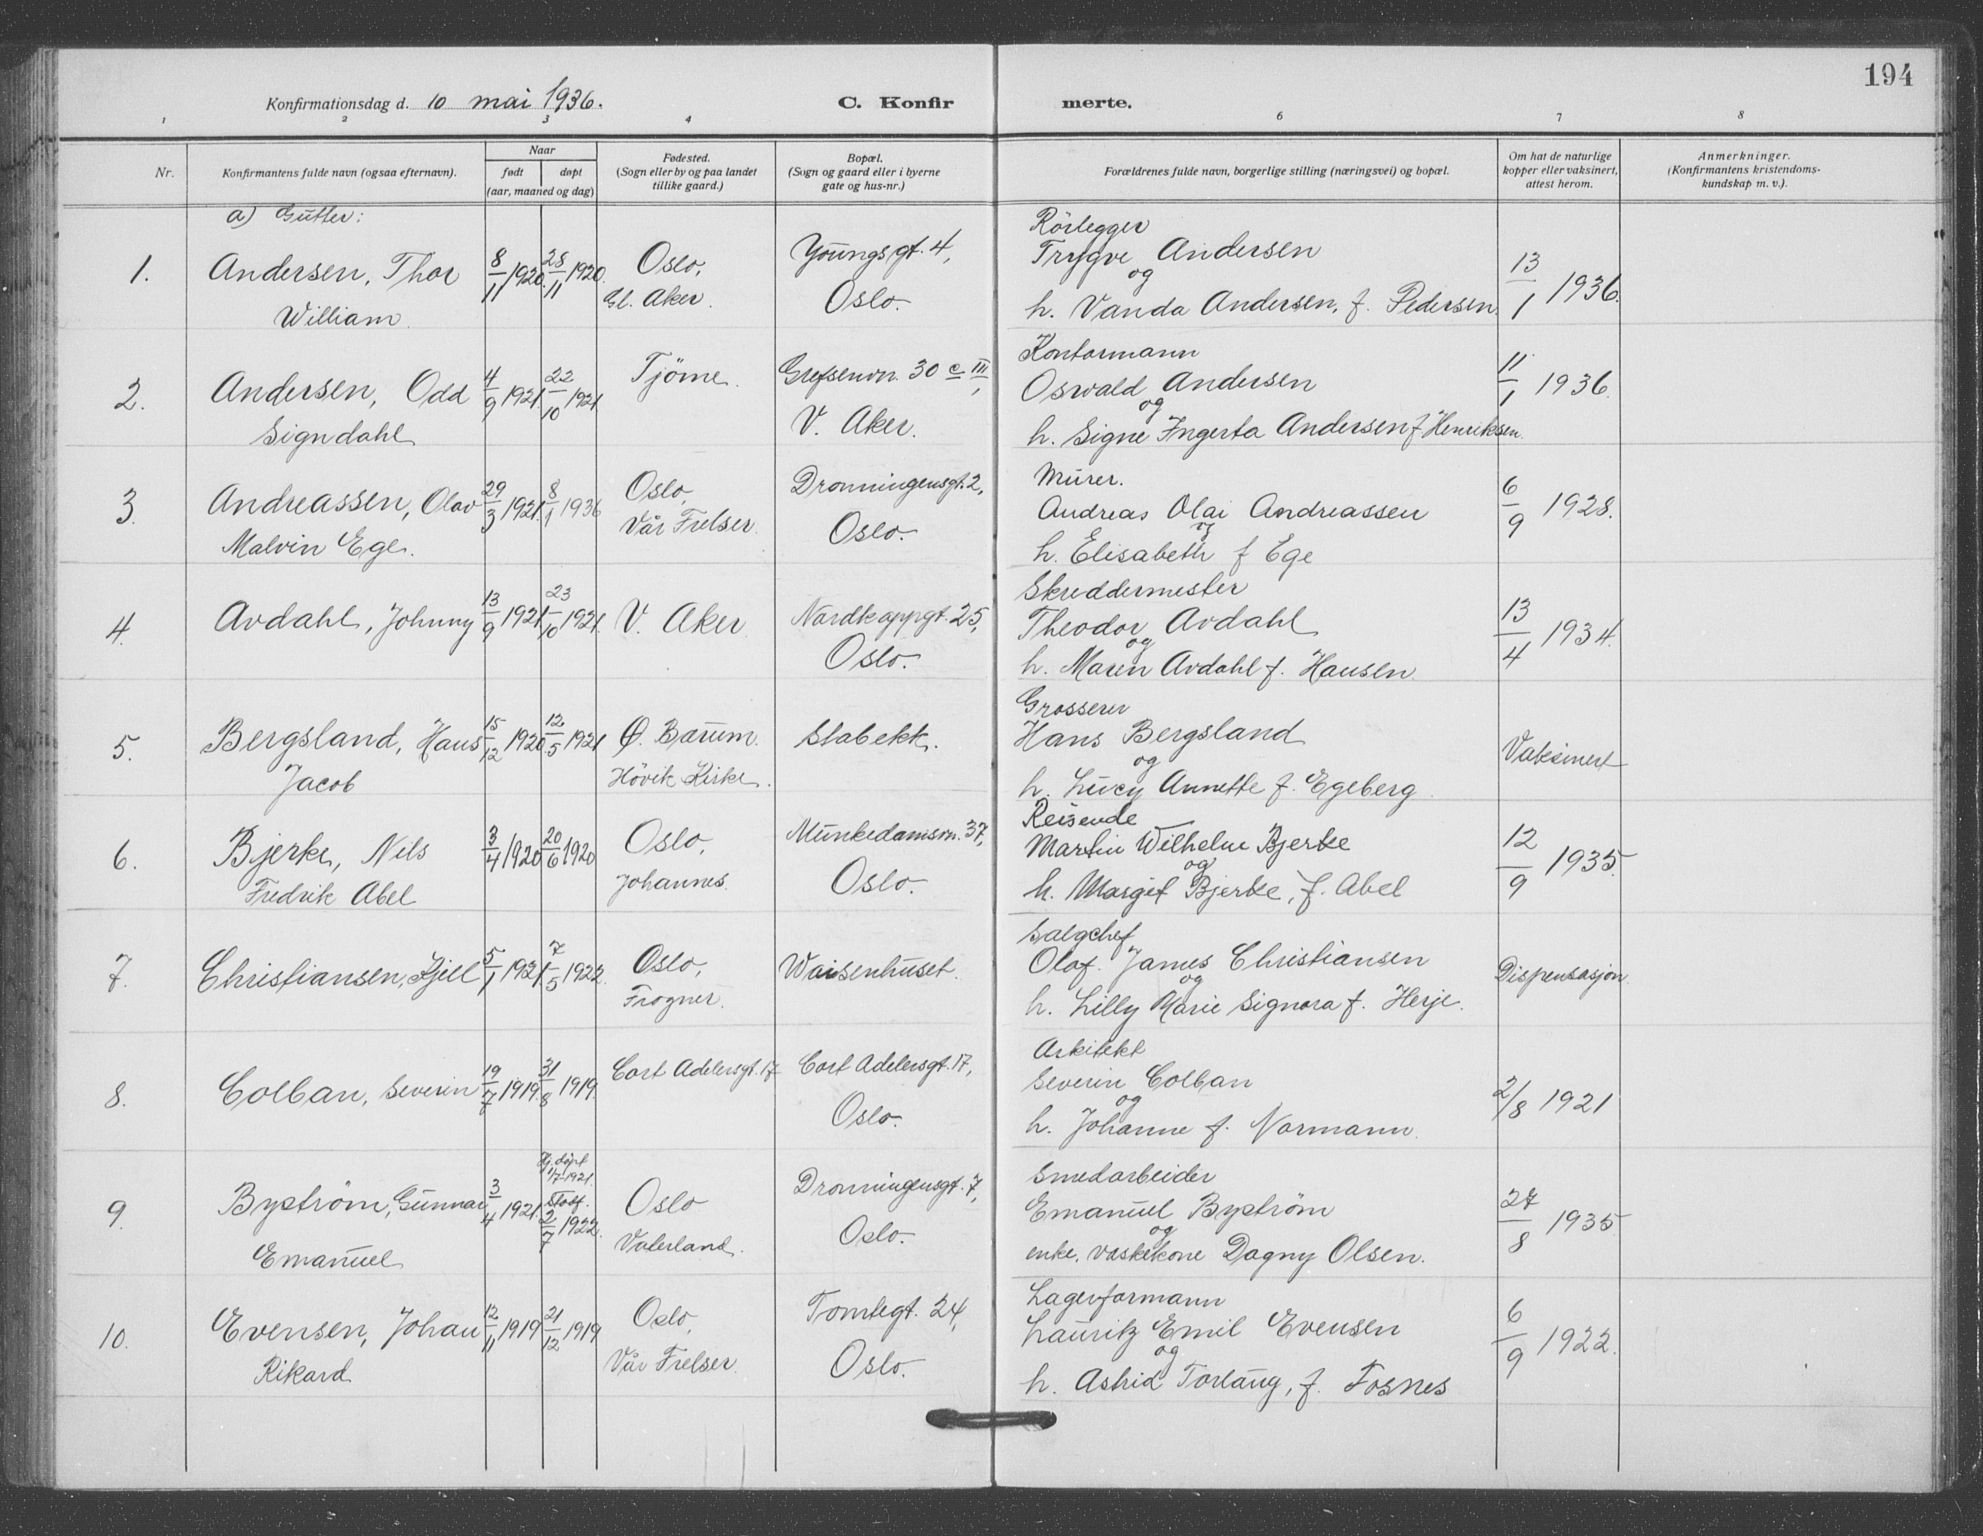 194
Konfirmationsdag d. 10 mai 1936.
C. Konfirmerte.
1 2 3 4 6 7 8
Nr.
Konfirmantens fulde navn (ogsaa efternavn).
Naar
født døpt
(aar, maaned og dag)
Fødested.
(Sogn eller by og paa landet
tillike gaard.)
Bopæl.
(Sogn og gaard eller i byerne
gate og hus-nr.)
Forældrenes fulde navn, borgerlige stilling (næringsvei) og bopæl.
Om hat de naturlige
kopper eller vaksinert,
attest herom.
Anmerkninger.
(Konfirmantens kristendoms-
kundskap m. v.).
a) Gutter:
1. Andersen, Thor
William
8/11 1920. 28/11 1920.
Oslo,
Gl. Aker.
Youngsgt. 4,
Oslo.
Rörlegger
Trygve Andersen
og
h. Vanda Andersen, f. Pedersen
13/1 1936.
2. Andersen, Odd
Signdahl
4/9 1921. 22/10 1921.
Tjöme.
Grefsenvn. 30 c III,
V. Aker.
Kontormann
Oswald Andersen
og
h. Signe Ingerta Andersen f Henriksen.
11/1 1936.
3. Andreassen, Olav
Malvin Ege.
29/3 1921. 8/1 1936
Oslo,
Vår Frelser.
Dronningensgt. 2,
Oslo.
Murer.
Andreas Olai Andreassen
og
h. Elisabeth f Ege
6/9 1928.
4. Avdahl, Johnny
13/9 1921. 23/10 1921.
V. Aker.
Nordkappgt. 25,
Oslo.
Skreddermester
Theodor Avdahl
og
h. Maren Avdahl f. Hansen.
13/4 1934.
5. Bergsland, Hans
Jacob
15/12 1920. 12/5 1921
Ø. Bærum.
Hövik Kirke.
Stabekk.
Grosserer
Hans Bergsland
og
h. Lucy Annette f. Egeberg.
Vaksinert
6. Bjerke, Nils
Fredrik Abel
3/4 1920 20/6 1920
Oslo,
Johannes.
Munkedamsvn. 37,
Oslo.
Reisende
Martin Wilhelm Bjerke
og
h. Margit Bjerke, f. Abel
12/9 1935.
7. Christiansen, Kjell
5/1 1921. 7/5 1922.
Oslo,
Frogner.
Waisenhuset.
Salgchef
Olaf James Christiansen
og
h. Lilly Marie Signora f. Herje.
Dispensasjon.
8. Colban, Severin
19/7 1919. 31/8 1919.
Cort Adelersgt. 17
Cort Adelersgt. 17,
Oslo.
Arkitekt
Severin Colban
og
h. Johanne f. Normann.
2/8 1921
9. Byström, Gunnar
Emanuel
3/4 1921.
Hj. döpt
1/7 1921.
Stadf.
2/7 1922.
Oslo
Vaterland.
Dronningensgt. 7,
Oslo.
Smedarbeider
Emanuel Byström
og
enke, vaskekone Dagny Olsen.
27/8 1935
10. Evensen, Johan
Rikard
12/11 1919 21/12 1919
Oslo,
Vår Frelser.
Tomtegt. 24,
Oslo.
Lagerformann
Lauritz Emil Evensen
og
h. Astrid Torlaug, f. Fosnes
6/9 1922.